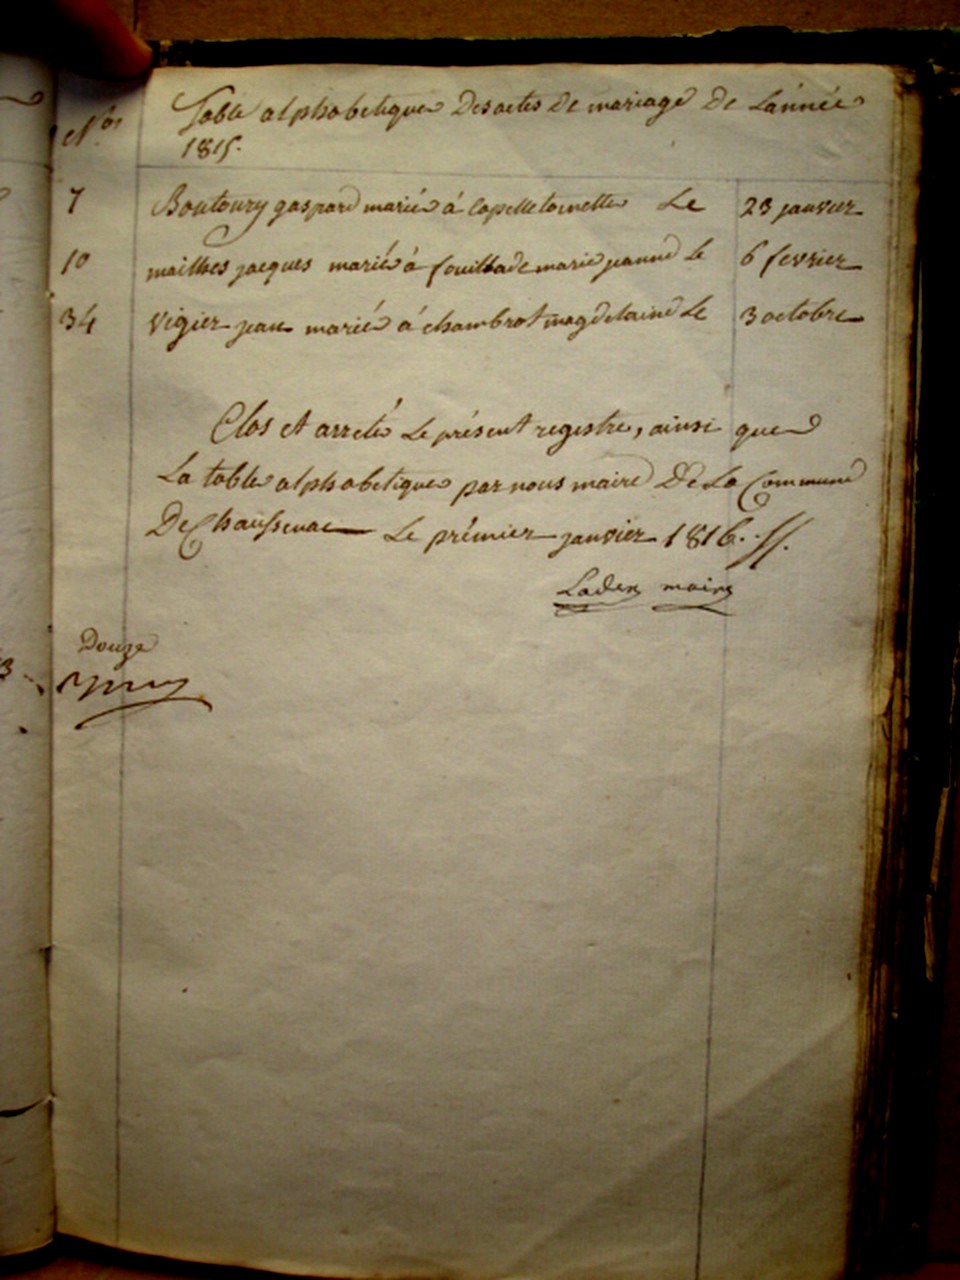 Nos Table alphabetique des actes de mariage de Lánnée
1815.
7 Boutoury gaspard marié á Capelle toinette Le 23 janvier
10 mailhes jacques marié á fouilhade marie jeanne Le 6 fevrier
34 Vigier jean marié á chambrot magdelaine Le 3 octobre
Clos et arreté Le présent registre, ainsi que
La table alphabetique par nous maire De La Commune
De Chaussenac Le prémier janvier 1816.
maire
Douze